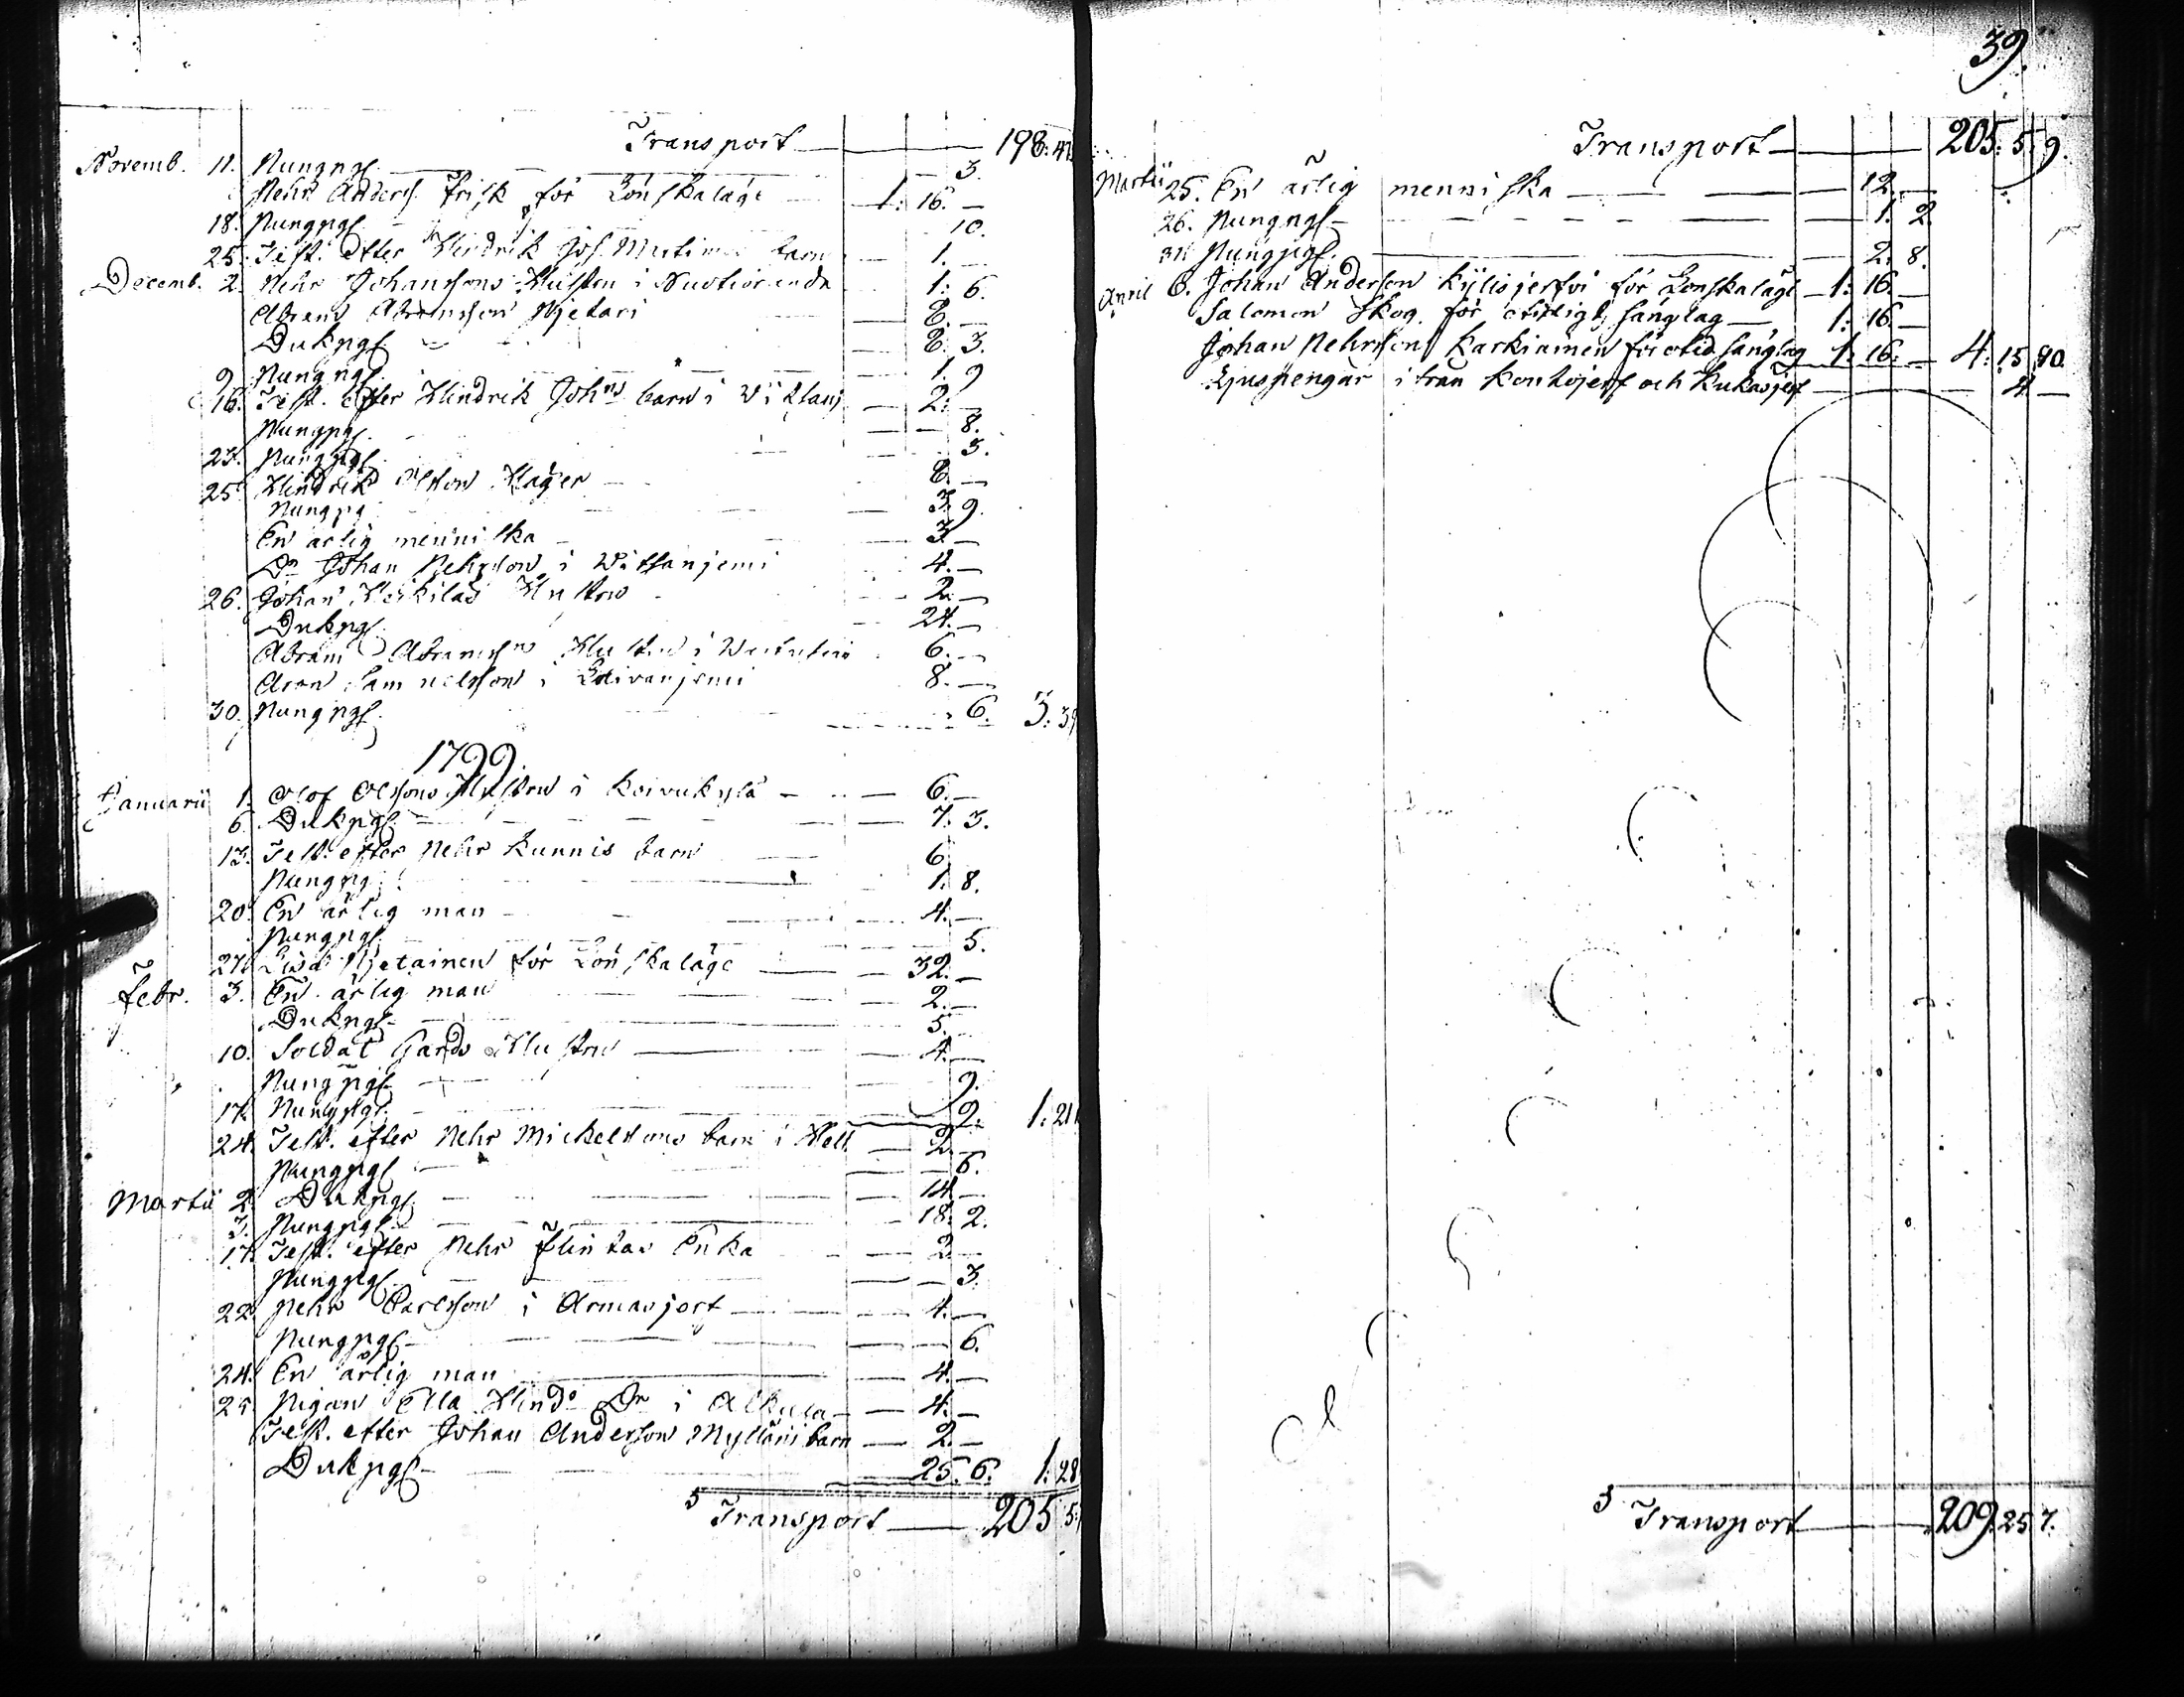 Transport — 198: 4
Novemb. 11. Pungpgr — 3.
Pehr Anderss. Frisk för Lönskaläge — 1: 16. —
18. Pungpgr — 10.
25. Test. efter Hindrik Joh. barn — 1. —
Decemb. 2. Pehr Johanssons Hustru i — 1: 6.
Abram Abramsson Njetari — 8. —
Dukpgr — 8. 3.
9. Pungpgr — 1. 9
16. Test. efter Hindrik Johns barn i — 2. —
Pungpgr — 8.
23. Pungpgr — 3.
25. Hindrik Olsson Häger — 8. —
Pungpg — 3. 9.
En ärlig menniska — 3. —
Do Johan Pehrsson i Wittanjemi — 4. —
26. Johan Heikilas Hustru — 2. —
Dukpgr — 24. —
Abram Abramssns Hustru i — 6. —
Aron Samuelsson i Laivanjemi — 8. —
30. Pungpgr — 6. 3: 39
1799.
Januarii 1. Olof Olssons Hustru i Koivukylä — 6. —
6. Dukpgr — 7. 3.
13. Test. efter Pehr Kunnis barn — 6.
Pungpg — 1. 8.
20. En ärlig man — 4. —
Pungpgr — 5.
27. Lisa Njetainen för Lönskaläge — 32. —
Febr. 3. En ärlig man — 2. —
Dukpgr — 5. —
10. Soldat Gards Hustru — 4. —
Pungpgr — 9.
17. Pungpgr — 9. 1: 21
24. Test. efter Pehr Mickelsons barn i Hell. — 2. —
Pungpgr — 6.
Martii 2. Dukpgr — 14. —
3. Pungpgr — 18. 2.
17. Test. efter Pehr Flintas Enka — 2. —
Pungpgr — 3.
22. Pehr Carlsson i Armasjerf — 4. —
Pungpgr — 6.
24. En ärlig man — 4. —
25. Pigan Ella Hind. Dr i Alkula — 4. —
Test. efter Johan Andersson Mylläris barn — 2. —
Dukpgr — 25. 6. 1: 28
Transport — 205 5:
39.
Transport — 205: 5. 9.
Martii 25. En ärlig menniska — 12. —
26. Pungpgr — 1. 2.
31. Pungpgr — 2. 8.
April 6. Johan Anderson Kylisjerfvi för Lönskaläge — 1: 16. —
Salomon Skog för otidigt sänglag — 1: 16. —
Johan Pehrsson Karkiainen för otid. sänglag 1: 16. — 4: 15. 10.
Ljuspengar ifrån Konkojerf och Kukasjerf — 4. —
Transport — 209. 25. 7.